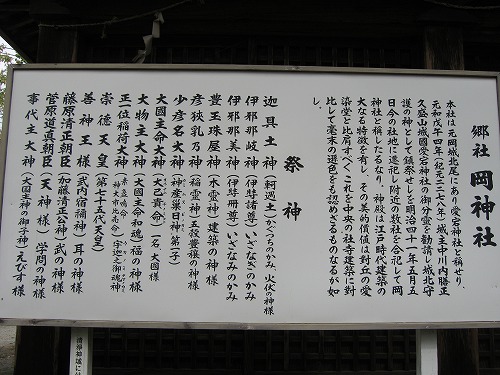 郷社 岡神社
本社は元岡城北尾にあり愛宕神社と稱せり、
元和九年四年(紀元二二七八年)城主中川内膳正
久盛山城國愛宕神社の御分霊を勧請し城北守
護の神として鎮祭せしを明治四十一年五月五
日今の社地に遷祀し附近の数社を合祀して岡
神社と稱したるなり、神殿は江戸時代建築の
大なる特徴を有し、その美的價値は對丘の愛
染堂と比肩すべくこれを中央の社寺建築に對
比して毫末の遜色をも認めざるものなるが如
し。
祭神
迦具土神(軻遇土)かぐつちのかみ、火伏神様
伊邪那岐神(伊弉諾尊)いざなぎのかみ
伊邪那美神(伊弉冊尊)いざなみのかみ
豊玉珠屋神(水霊神)建築の神様
彦狭乳乃神(稲霊神)五穀豊穣の神様
少彦名大神(神産巣日神)第二子
大國主命(大己貴命)一名、大國様
大物主大神(大國主命和魂)福の神様
正一位稲荷大神(宇迦之御魂神)
崇徳天皇(第七十五代天皇)
善神王様(武内宿禰神)耳の神様
藤原清正朝臣(加藤清正公神)武の神様
菅原道真朝臣(天神様)学問の神様
事代主大神(大国主神の御子神)えびす様